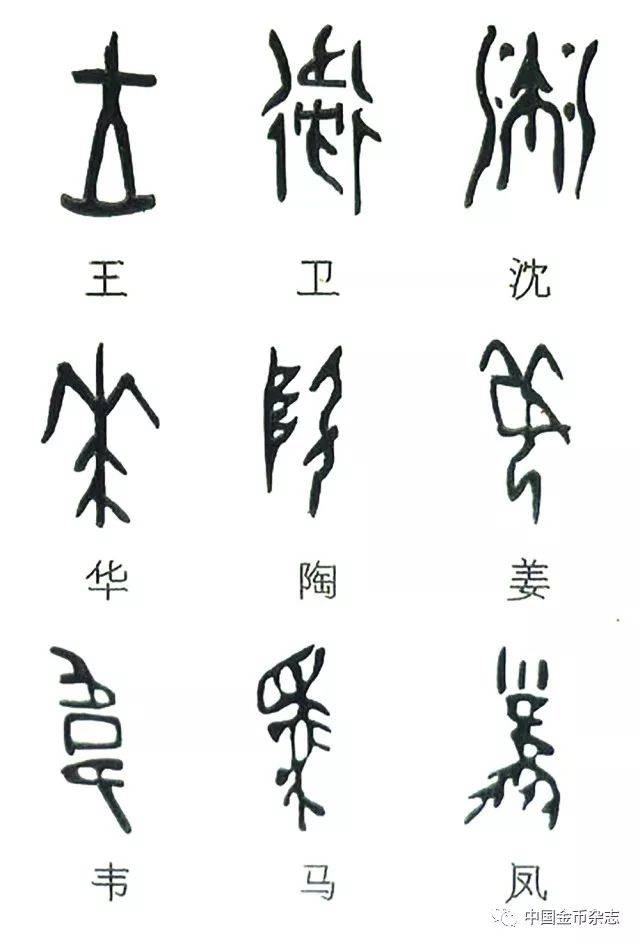 王 卫 沈
华 陶 姜
韦 马 凤
中国金币杂志